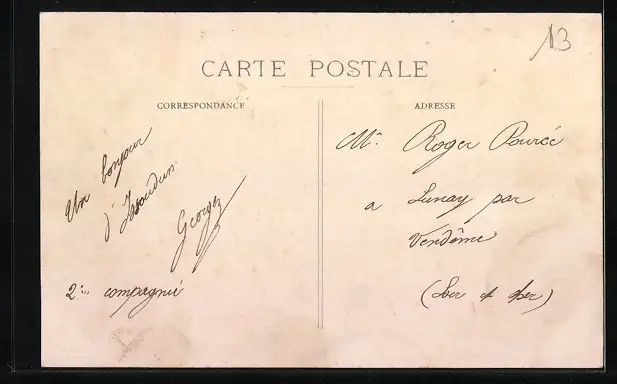 13
CARTE POSTALE
CORRESPONDANCE
ADRESSE
Un bonjour
d'Issoudun
Georges
2e compagnie
Mr. Roger
a Lunay par
Vendôme
(Loir et Cher)